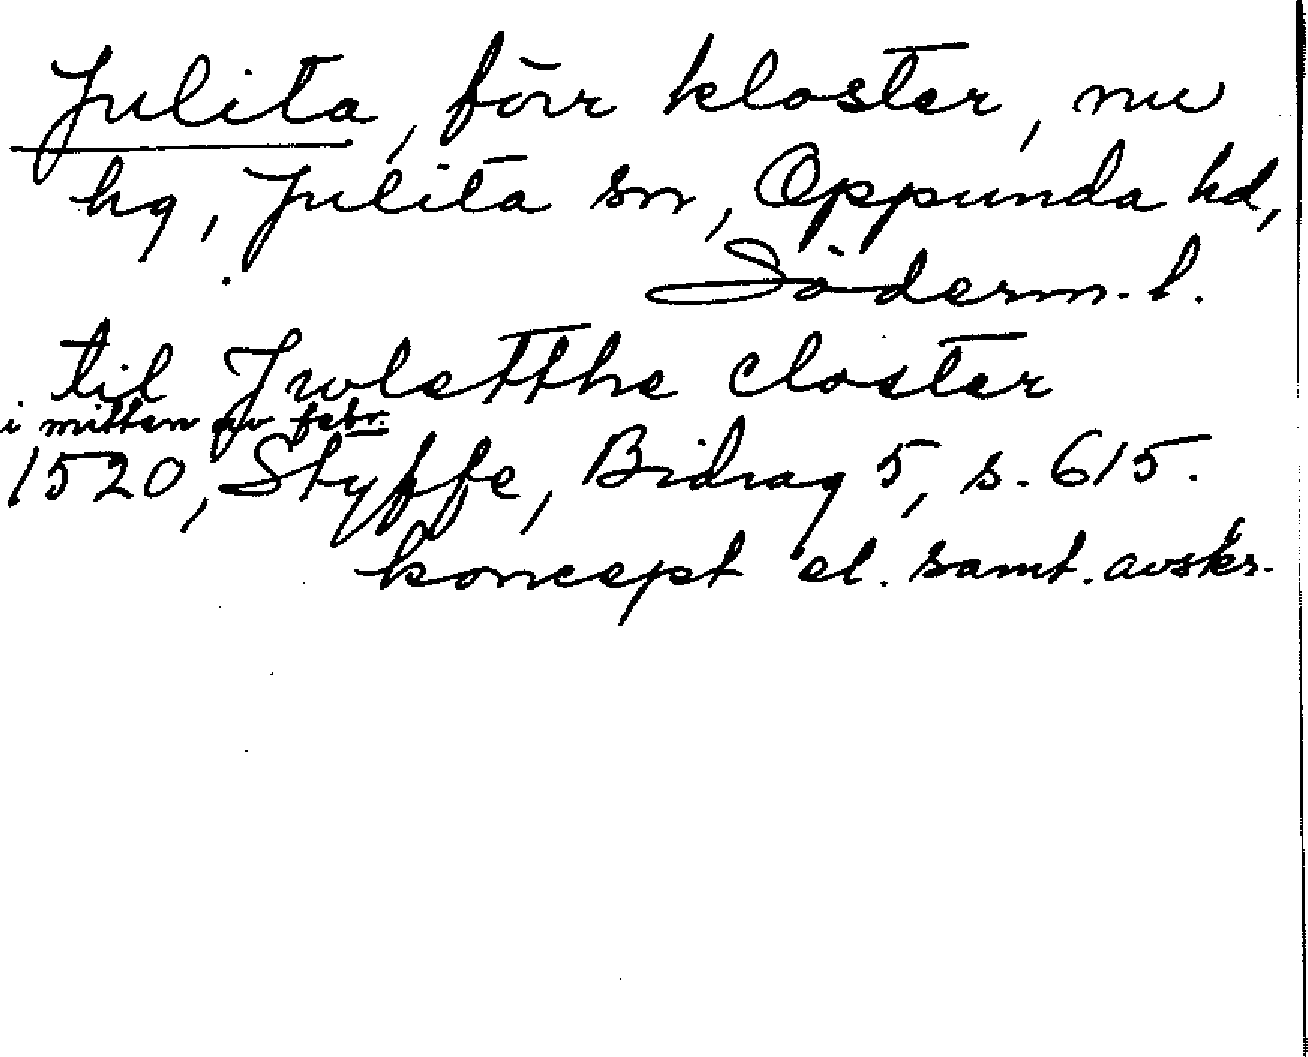 Julita, förr kloster, nu
hg, Julita sn, Oppunda hd,
Söderm. l.
til Jwletthe closter
i mitten av febr.
1520, Styffe, Bidrag 5, s. 615.
koncept el. samt. avskr.